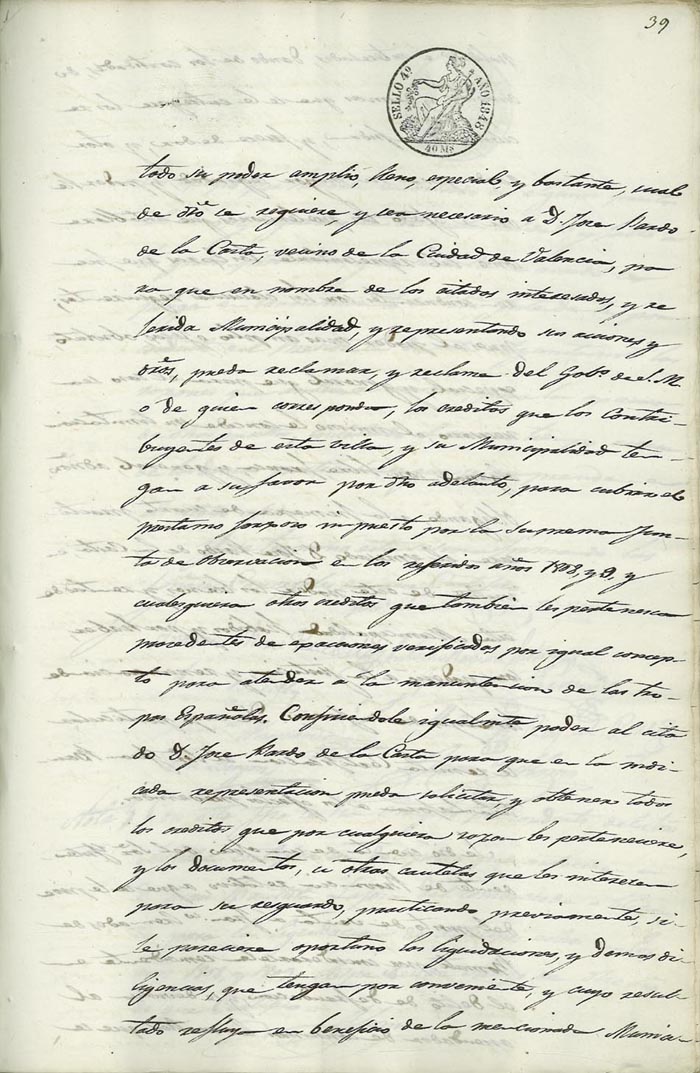 39
SELLO 4º AÑO 1848
40 Ms
todo su poder amplio, lleno, especial, y bastante, cual
de dro se requiere, y sea necesario a D. Jose Pardo
de la Casta, vecino de la Ciudad de Valencia, pa
ra que en nombre de los citados interesados, y re
ferida Municipalidad, y representando sus acciones y
dros, pueda reclamar, y reclame del Gobo de S. M.
o de quien corresponda, los creditos que los Contri-
buyentes de esta villa, y su Municipalidad ten-
gan a su favor por dro adelanto, para cubrir el
prestamo forzoso impuesto por la Suprema Jun-
ta de Observacion en los referidos años 1808, y 9, y
cualesquiera otros creditos que tambien les pertenesca
procedentes de esaciones verificadas por igual concep-
to para atender a la manutencion de las tro
pas Españolas. Confiriendole igualmte poder al cita
do D. Jose Pardo de la Casta para que en la indi
cada representacion pueda solicitar, y obtener todos
los creditos que por cualquiera razon les perteneciere,
y los documentos, u otras cautelas que les interesen
para su resguardo, practicando previamente, si-
le pareciere oportuno las liquidaciones, y demas di-
ligencias, que tengan por conveniente, y cuyo resul-
tado refluya en beneficio de la mencionada Munici-